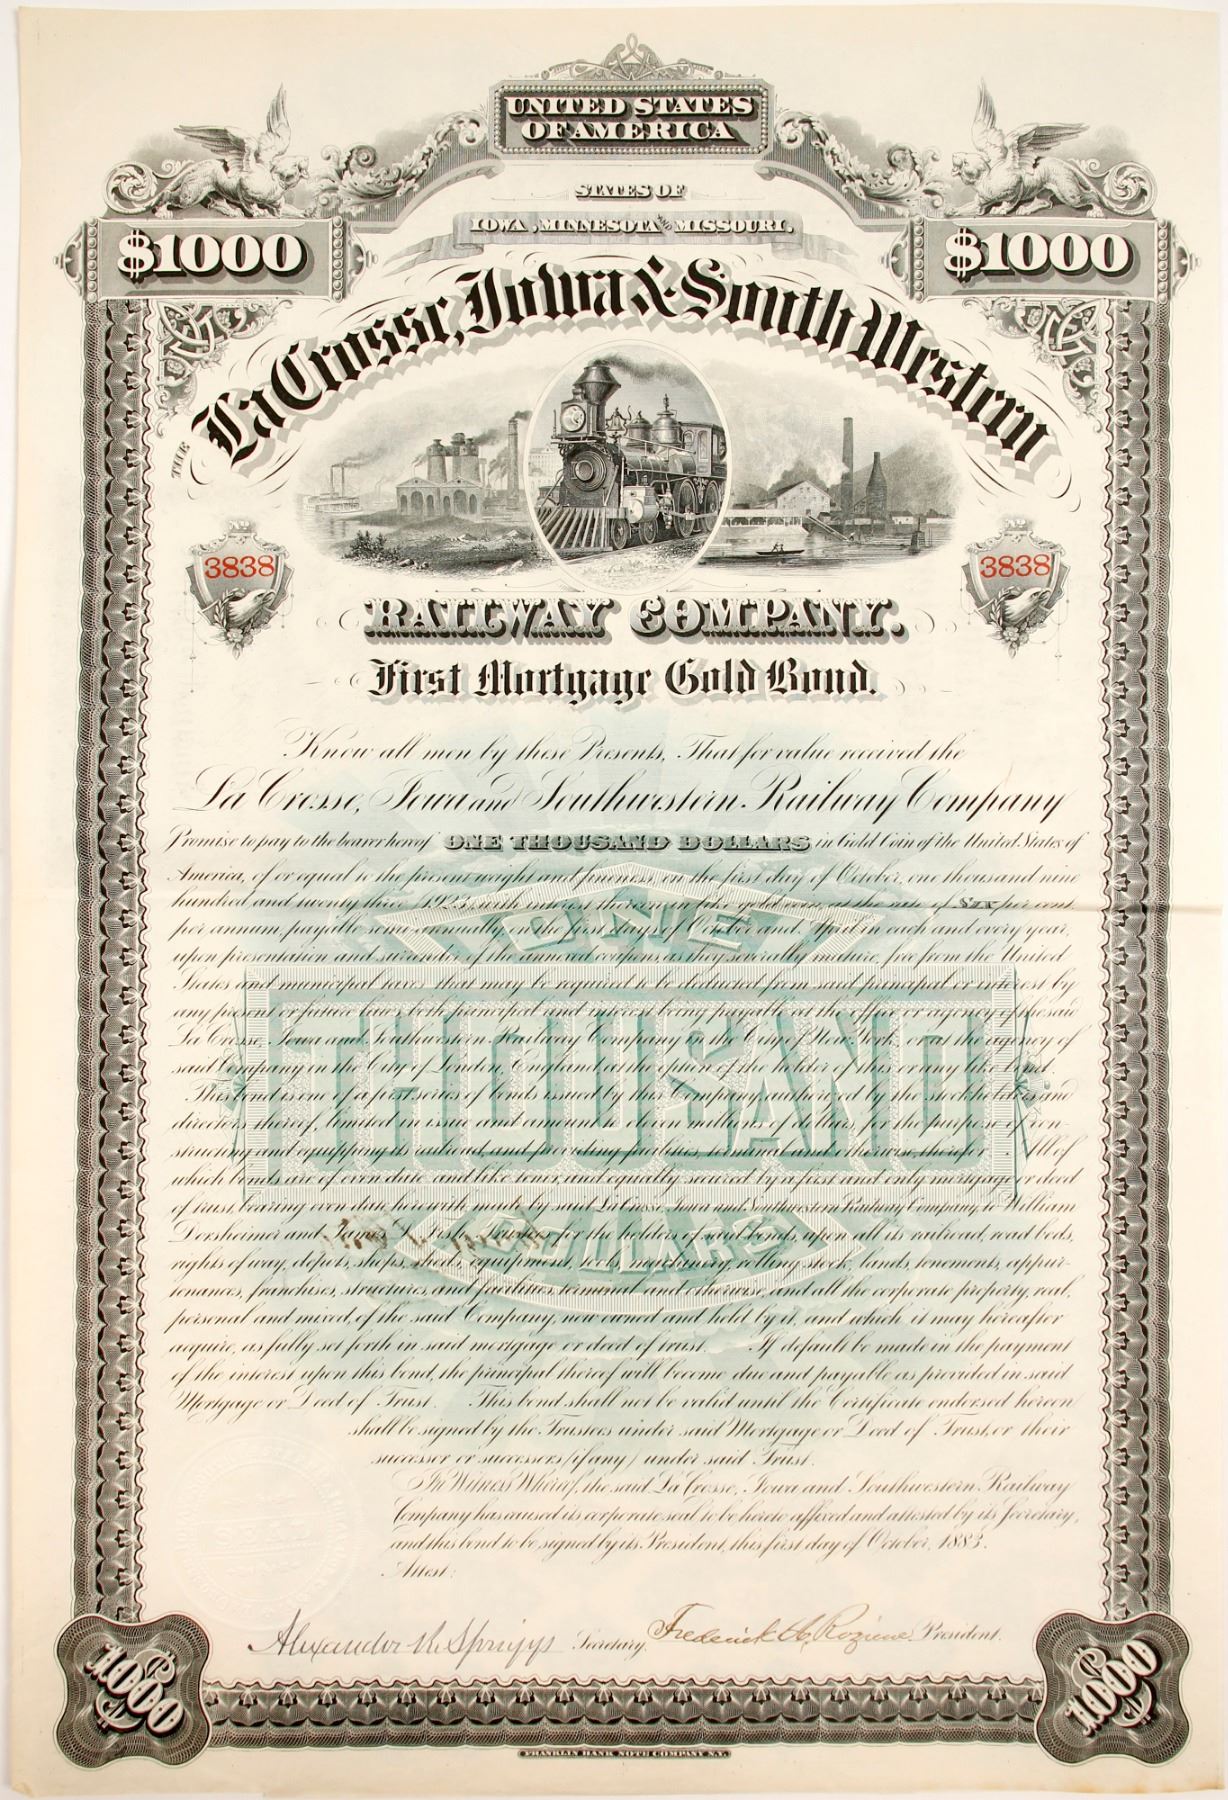 UNITED STATES
OF AMERICA
STATES OF
IOWA, MINNESOTA AND MISSOURI.
$1000
$1000
THE La Crosse, Iowa & South Western
No
3838
No
3838
RAILWAY COMPANY.
First Mortgage Gold Bond.
Know all men by these Presents, That for value received the
La Crosse, Iowa and Southwestern Railway Company
Promise to pay to the bearer hereof ONE THOUSAND DOLLARS in Gold Coin of the United States of
America, of or equal to the present weight and fineness, on the first day of October, one thousand nine
hundred and twenty three (1923) with interest thereon in like gold coin, at the rate of Six per cent.
per annum, payable semi annually, on the first days of October and April in each and every year,
upon presentation and surrender of the annexed coupons, as they severally mature, free from the United
States and municipal taxes that may be required to be deducted from said principal or interest by
any present or future laws, both principal and interest being payable at the office or agency of the said
La Crosse, Iowa and Southwestern Railway Company in the City of New York, or at the agency of
said Company in the City of London, England, at the option of the holder of this or any like bond.
This bond is one of a first series of bonds issued by this Company, authorized by the stockholders and
directors thereof, limited in issue and amount to eleven millions of dollars, for the purpose of con-
structing and equipping its railroad, and providing facilities, terminal and otherwise, therefor. All of
which bonds are of even date and like tenor, and equally secured by a first and only mortgage or deed
of trust, bearing even date herewith made by said La Crosse, Iowa and Southwestern Railway Company, to William
Dorsheimer and James D. Fish, Trustees, for the holders of said bonds, upon all its railroad, road beds,
rights of way, depots, shops, sheds, equipment, tools, machinery, rolling stock, lands, tenements, appur-
tenances, franchises, structures, and facilities, terminal and otherwise, and all the corporate property, real,
personal and mixed, of the said Company, now owned and held by it, and which it may hereafter
acquire, as fully set forth in said mortgage or deed of trust. If default be made in the payment
of the interest upon this bond, the principal thereof will become due and payable as provided in said
Mortgage or Deed of Trust. This bond shall not be valid until the Certificate endorsed hereon
shall be signed by the Trustees under said Mortgage or Deed of Trust, or their
successor or successors (if any) under said Trust.
In Witness Whereof, the said La Crosse, Iowa and Southwestern Railway
Company has caused its corporate seal to be hereto affixed and attested by its Secretary,
and this bond to be signed by its President, this first day of October, 1883.
Attest:
ONE
THOUSAND
DOLLARS
Alexander W Spriggs Secretary. Frederick A. Roziene President.
$1000
$1000
FRANKLIN BANK NOTE COMPANY N.Y.